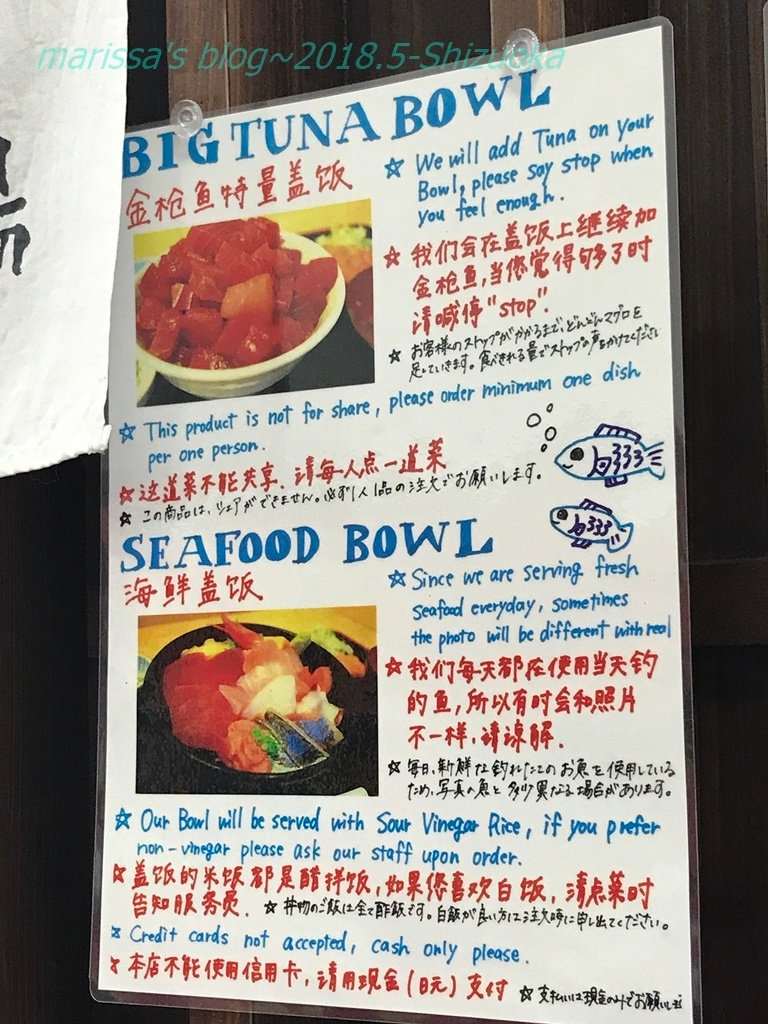 marissa's blog~2018.5-Shizuoka
BIG TUNA BOWL
金枪鱼特量盖饭
☆ We will add Tuna on your
Bowl, please say stop when
you feel enough.
☆ 我们会在盖饭上继续加
金枪鱼,当您觉得够了时
请喊停"stop".
☆ お客様のストップがかかるまで、どんどんマグロを
足していきます。食べきれる量でストップの声をかけてください
☆ This product is not for share, please order minimum one dish
per one person.
☆ 这道菜不能共享.请每一人点一道菜
☆ この商品は、シェアができません。必ず1人1品の注文でお願いします。
SEAFOOD BOWL
海鲜盖饭
☆ Since we are serving fresh
seafood everyday, sometimes
the photo will be different with real
☆ 我们每天都在使用当天钓
的鱼,所以有时会和照片
不一样,请谅解.
☆ 毎日、新鮮な釣れたてのお魚を使用している
ため、写真の魚と多少異なる場合があります。
☆ Our Bowl will be served with Sour Vinegar Rice, if you prefer
non-vinegar please ask our staff upon order.
☆ 盖饭的米饭都是醋拌饭,如果您喜欢白饭,请点菜时
告知服务员. ☆ 丼物のご飯は全て酢飯です。白飯が良い方は注文時に申し出てください。
☆ Credit cards not accepted, cash only please.
☆ 本店不能使用信用卡,请用现金(日元)支付 ☆ 支払いは現金のみでお願いしま